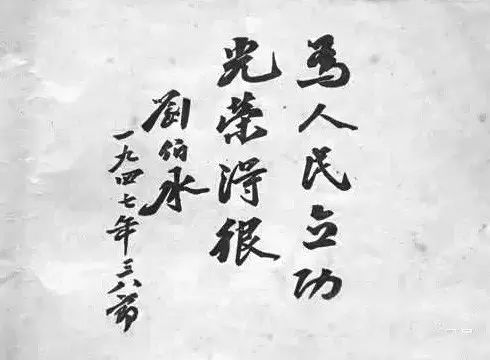 为人民立功
光荣得很
劉伯承
一九四七年三八節